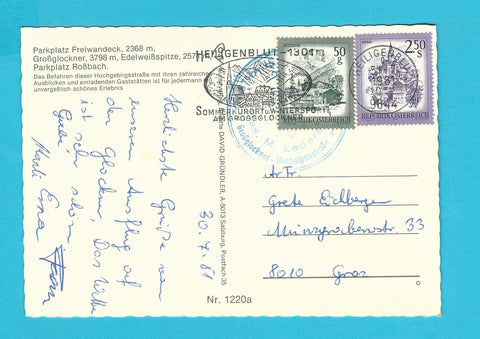 Parkplatz Freiwandeck, 2368 m,
Großglockner, 3798 m, Edelweißspitze, 257
Parkplatz Roßbach.
Das Befahren dieser Hochgebirgsstraße mit ihren zahlreichen
Ausblicken und einladenden Gaststätten ist für jedermann
unvergeßlich schönes Erlebnis
Herzlichste Grüße von
unserem Ausflug auf
den Glockner. Das Wetter
ist sehr schön
Erna
30.7.81
HEILIGENBLUT-1301m
SOMMERKURORT u. WINTERSPORT
AM GROSSGLOCKNER
50
g
REPUBLIK ÖSTERREICH
2.50
S
REPUBLIK ÖSTERREICH
HEILIGENBLUT
9844
Großglockner - Hochalpenstraße
DAVID-GRÜNDLER, A-5013 Salzburg, Postfach 35
Nr. 1220a
Grete Eichberger
Münzgrabenstr. 33
8010 Graz